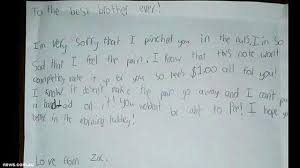 To the best brother ever!
I'm very sorry that I pinched you in the nuts. I'm so
sad that I feel the pain. I know that this note won't
completely make it up to you so here's $1.00 all for you!
I know it doesn't make the pain go away and I can't put
a on it! You wouldn't be able to pee! I hope you
better in the morning
Love from Zac
news.com.au